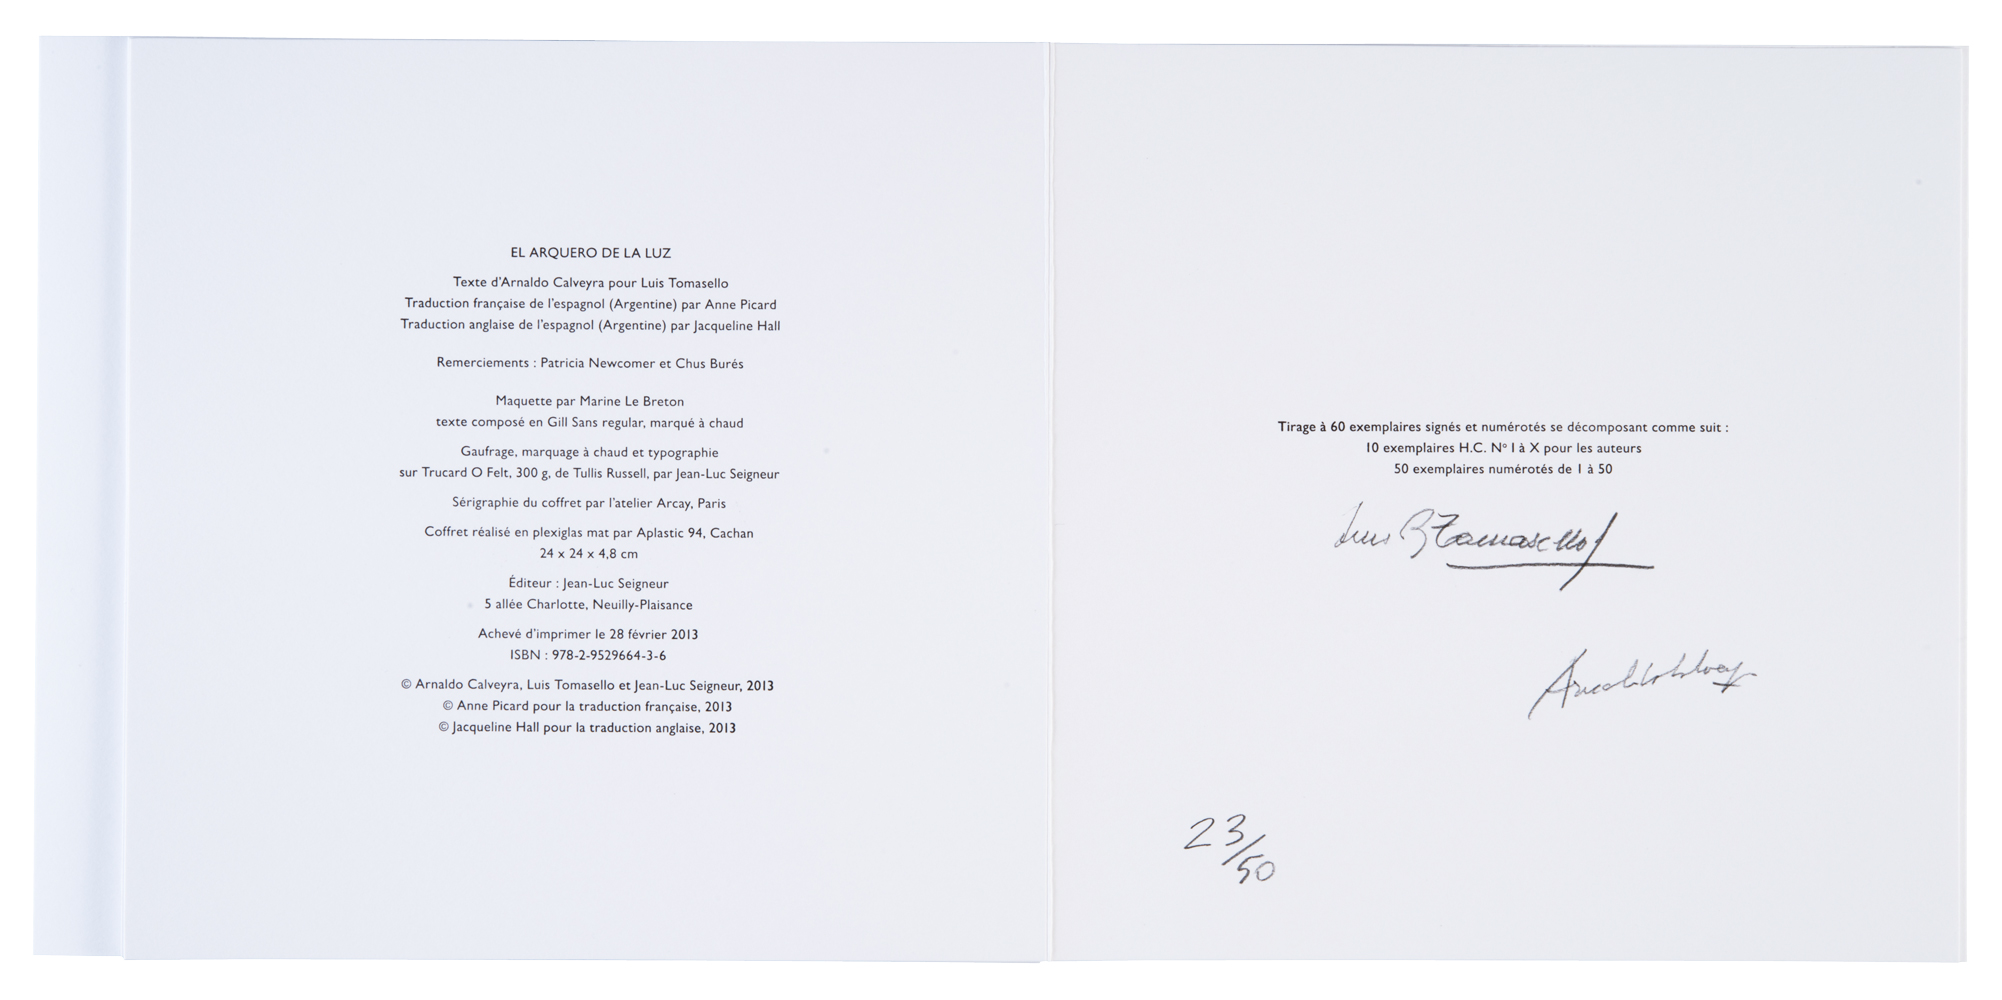 EL ARQUERO DE LA LUZ
Texte d'Arnaldo Calveyra pour Luis Tomasello
Traduction française de l'espagnol (Argentine) par Anne Picard
Traduction anglaise de l'espagnol (Argentine) par Jacqueline Hall
Remerciements : Patricia Newcomer et Chus Burés
Maquette par Marine Le Breton
texte composé en Gill Sans regular, marqué à chaud
Gaufrage, marquage à chaud et typographie
sur Trucard O Felt, 300 g, de Tullis Russell, par Jean-Luc Seigneur
Sérigraphie du coffret par l'atelier Arcay, Paris
Coffret réalisé en plexiglas mat par Aplastic 94, Cachan
24 x 24 x 4,8 cm
Éditeur : Jean-Luc Seigneur
5 allée Charlotte, Neuilly-Plaisance
Achevé d'imprimer le 28 février 2013
ISBN : 978-2-9529664-3-6
© Arnaldo Calveyra, Luis Tomasello et Jean-Luc Seigneur, 2013
© Anne Picard pour la traduction française, 2013
© Jacqueline Hall pour la traduction anglaise, 2013
Tirage à 60 exemplaires signés et numérotés se décomposant comme suit :
10 exemplaires H.C. N° I à X pour les auteurs
50 exemplaires numérotés de 1 à 50
Luis Tomasello
23/50